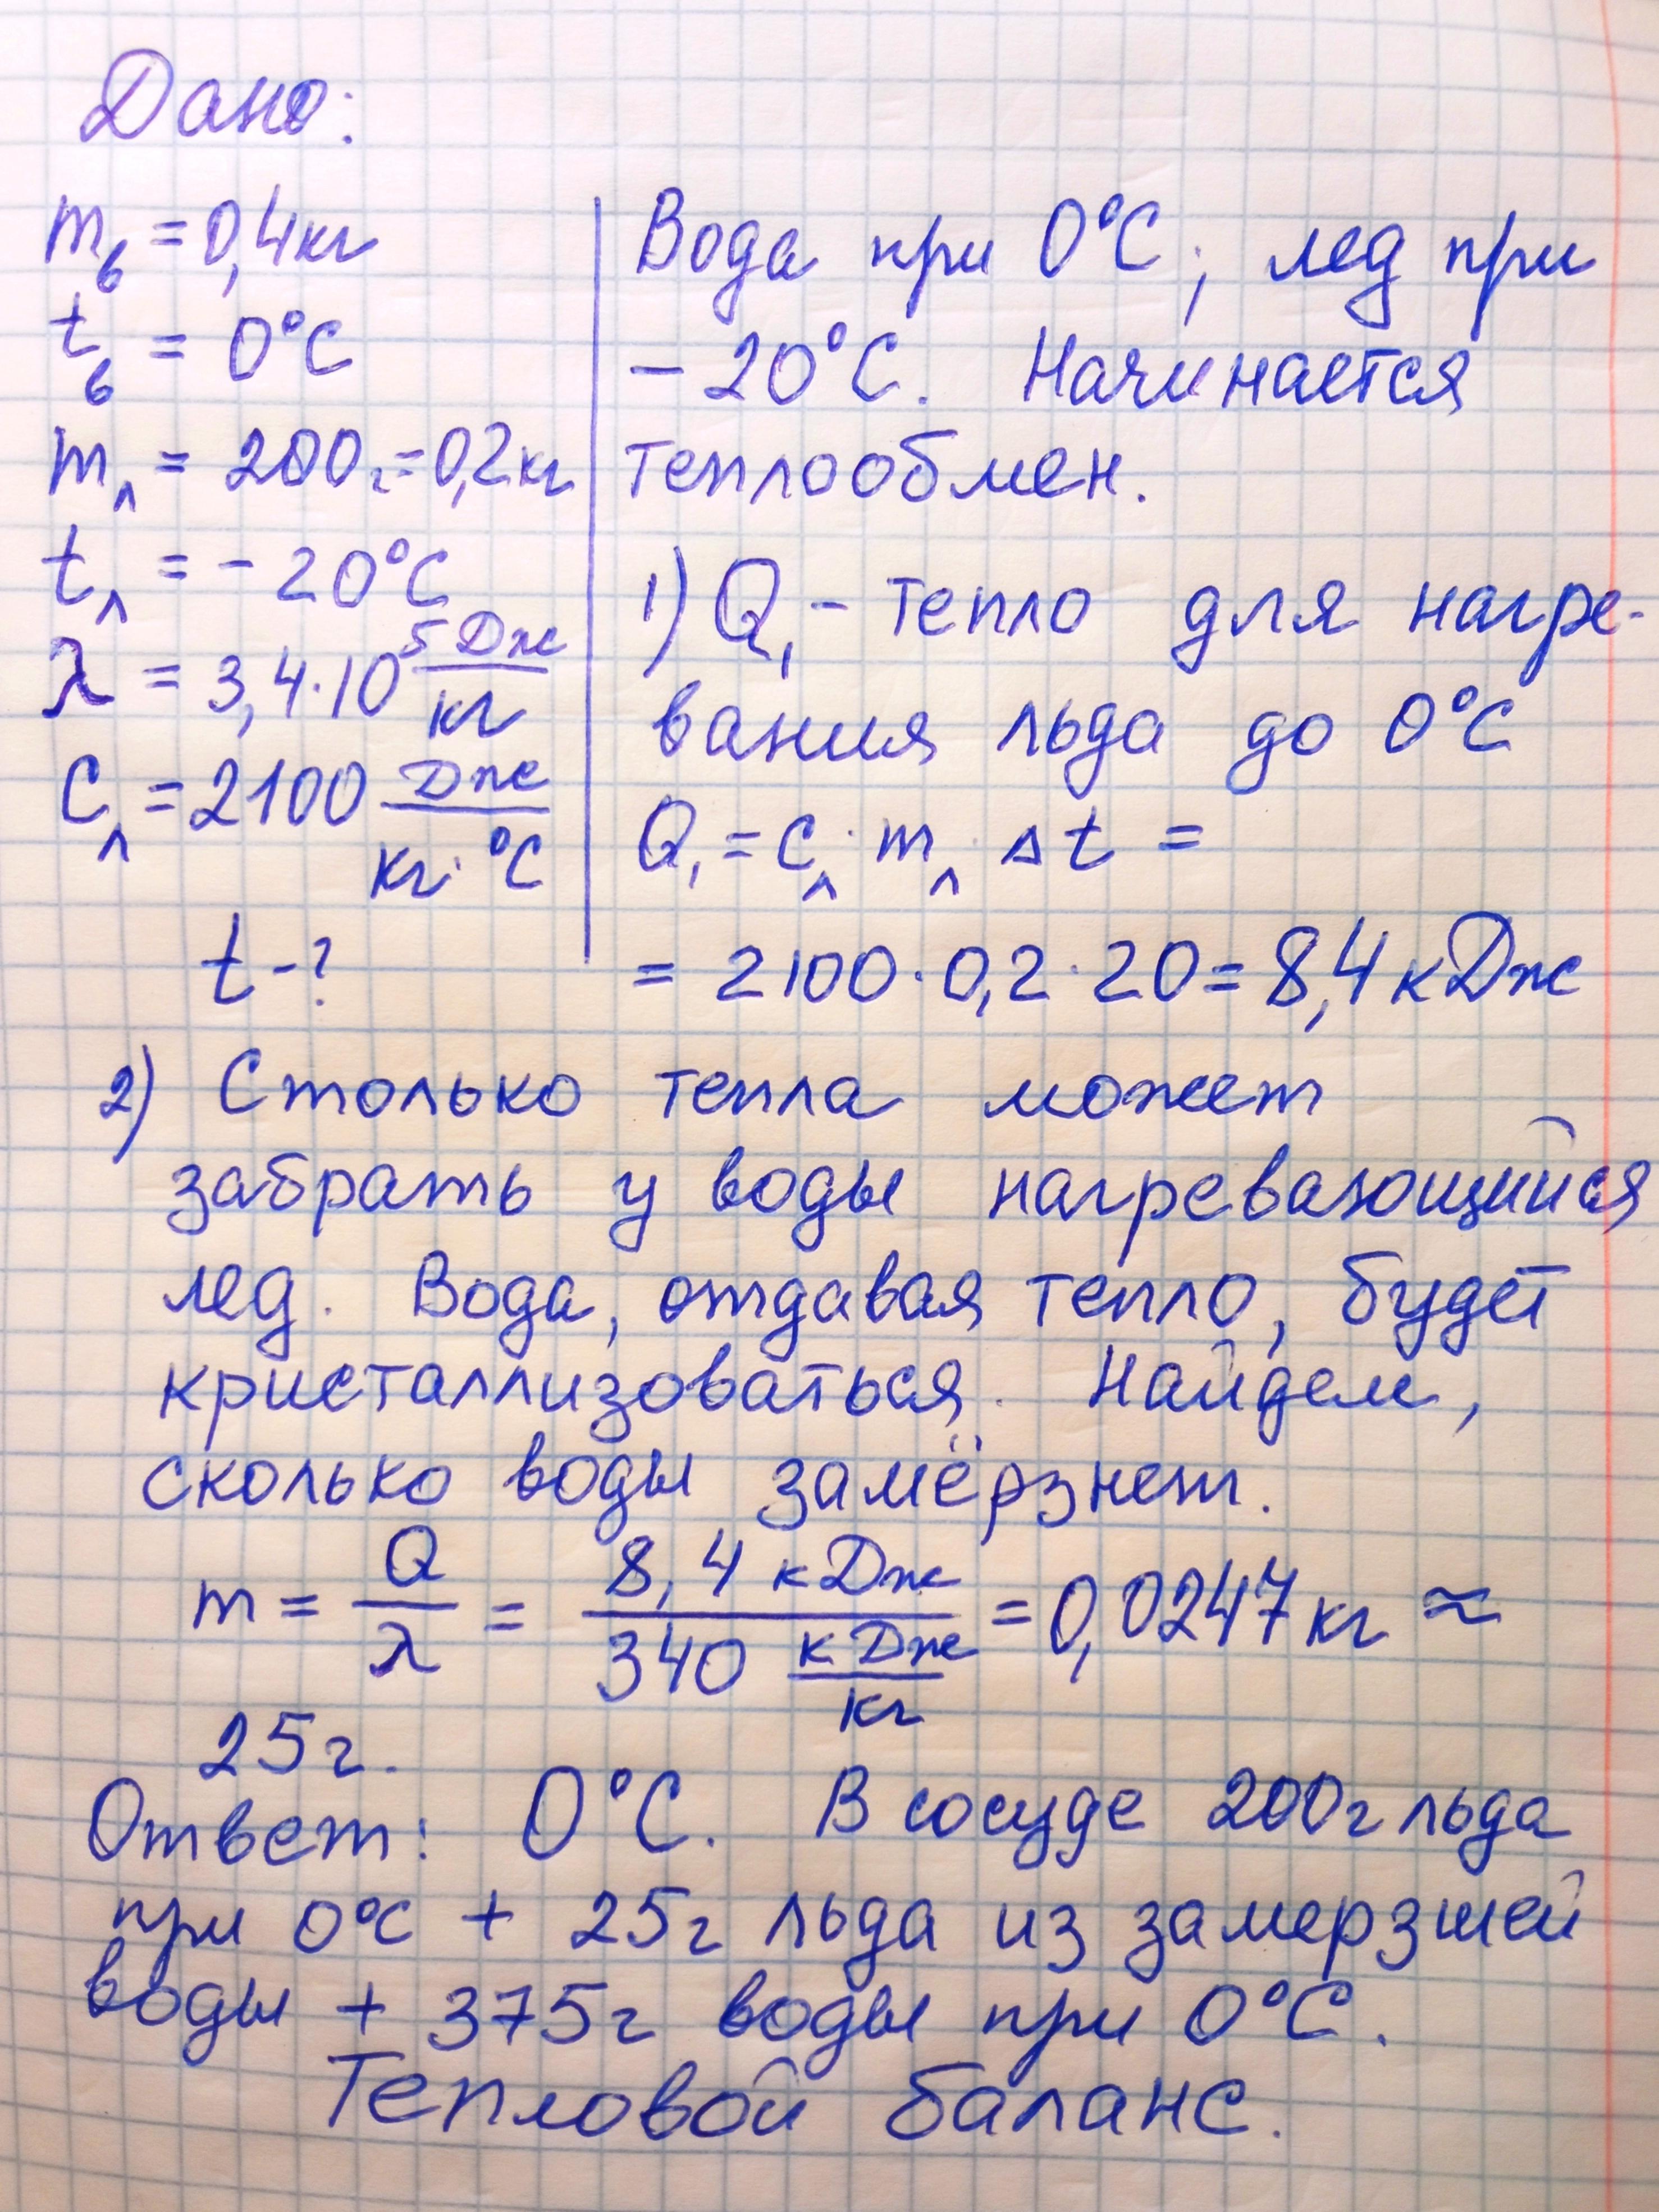 Дано:
m_в = 0,4кг
t_в = 0°C
m_л = 200г = 0,2кг
t_л = - 20°C
λ = 3,4·10⁵ Дж/кг
C_л = 2100 Дж/кг·°C
t - ?
Вода при 0°C; лед при
- 20°C. Начинается
теплообмен.
1) Q₁ - тепло для нагре-
вания льда до 0°C
Q₁ = C_л · m_л Δt =
= 2100·0,2·20 = 8,4 кДж
2) Столько тепла может
забрать у воды нагревающийся
лед. Вода, отдавая тепло, будет
кристаллизоваться. Найдем,
сколько воды замёрзнет.
m = Q/λ = 8,4 кДж / 340 кДж/кг = 0,0247 кг ≈
25г.
Ответ: 0°C. В сосуде 200г льда
при 0°C + 25г льда из замерзшей
воды + 375г воды при 0°C.
Тепловой баланс.